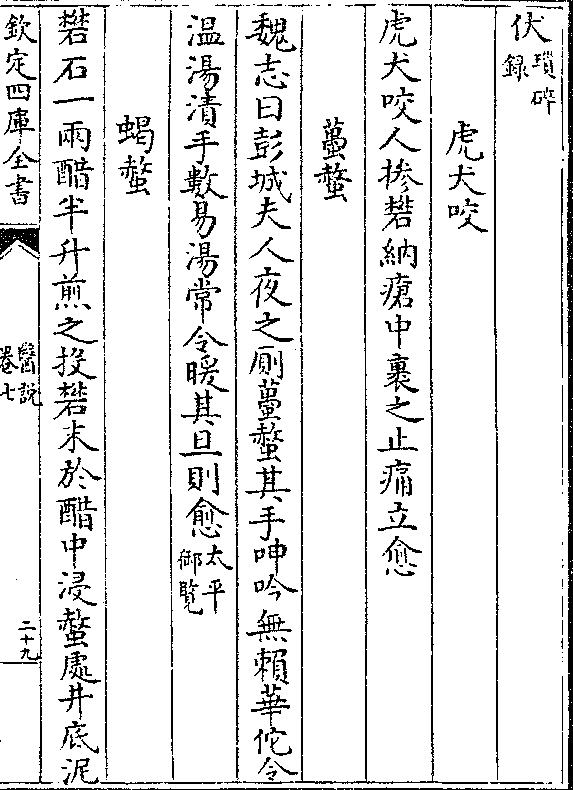 伏瑣碎録
虎犬咬
虎犬咬人摻礬納瘡中裹之止痛立愈
蠆螫
魏志曰彭城夫人夜之厠蠆螫其手呻吟無賴華佗令
温湯漬手數易湯常令暖其旦則愈太平御覧
蝎螫
礬石一兩醋半升煎之投礬末於醋中浸螫處井底泥
欽定四庫全書
醫説
卷七
二十九